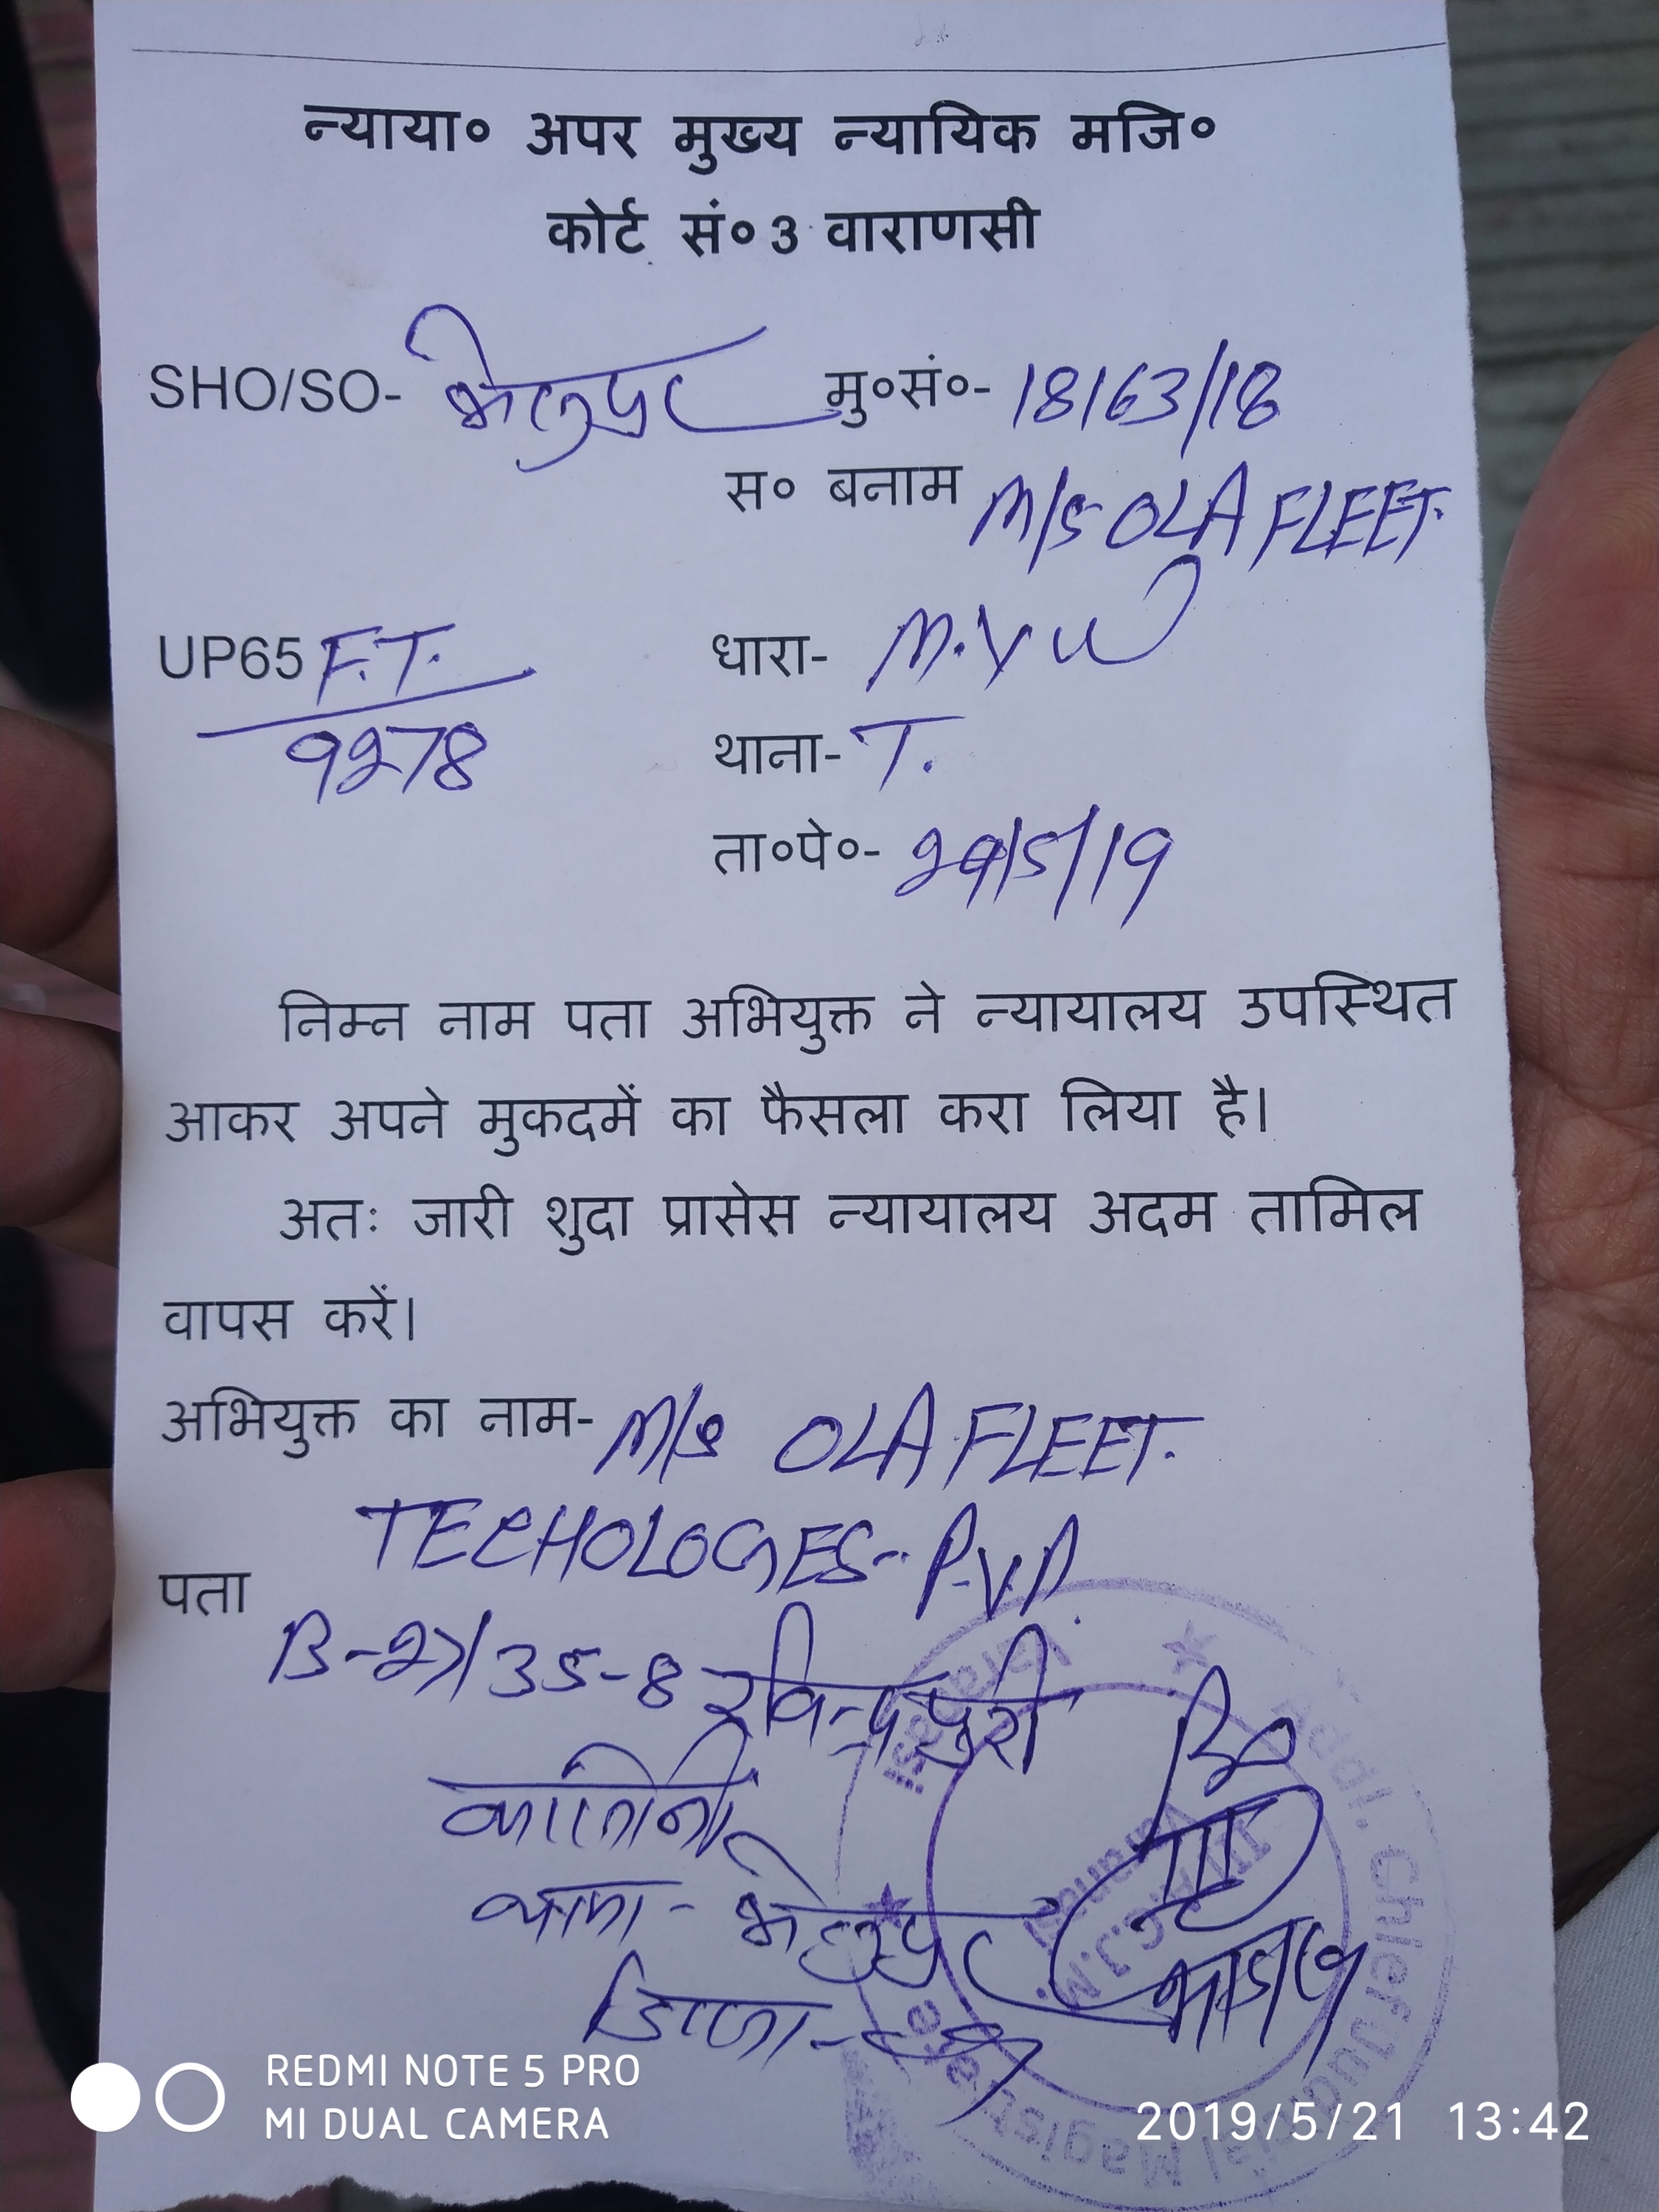 न्याया० अपर मुख्य न्यायिक मजि०
कोर्ट सं०3 वाराणसी
SHO/SO- भेलुपुर मु०सं०- 18163/18
स० बनाम M/S OLA FLEET.
UP65 F.T. धारा- M.V
9278 थाना- T.
ता०पे०- /5/19
निम्न नाम पता अभियुक्त ने न्यायालय उपस्थित
आकर अपने मुकदमें का फैसला करा लिया है।
अतः जारी शुदा प्रासेस न्यायालय अदम तामिल
वापस करें।
अभियुक्त का नाम- M/S OLA FLEET.
TECHOLOGES-
पता
B-27/35-8 रविन्द्रपुरी
कालोनी
थाना- भेलुपुर
जिला-
Addl. Chief Judicial Magistrate
Varanasi
REDMI NOTE 5 PRO
MI DUAL CAMERA
2019/5/21 13:42